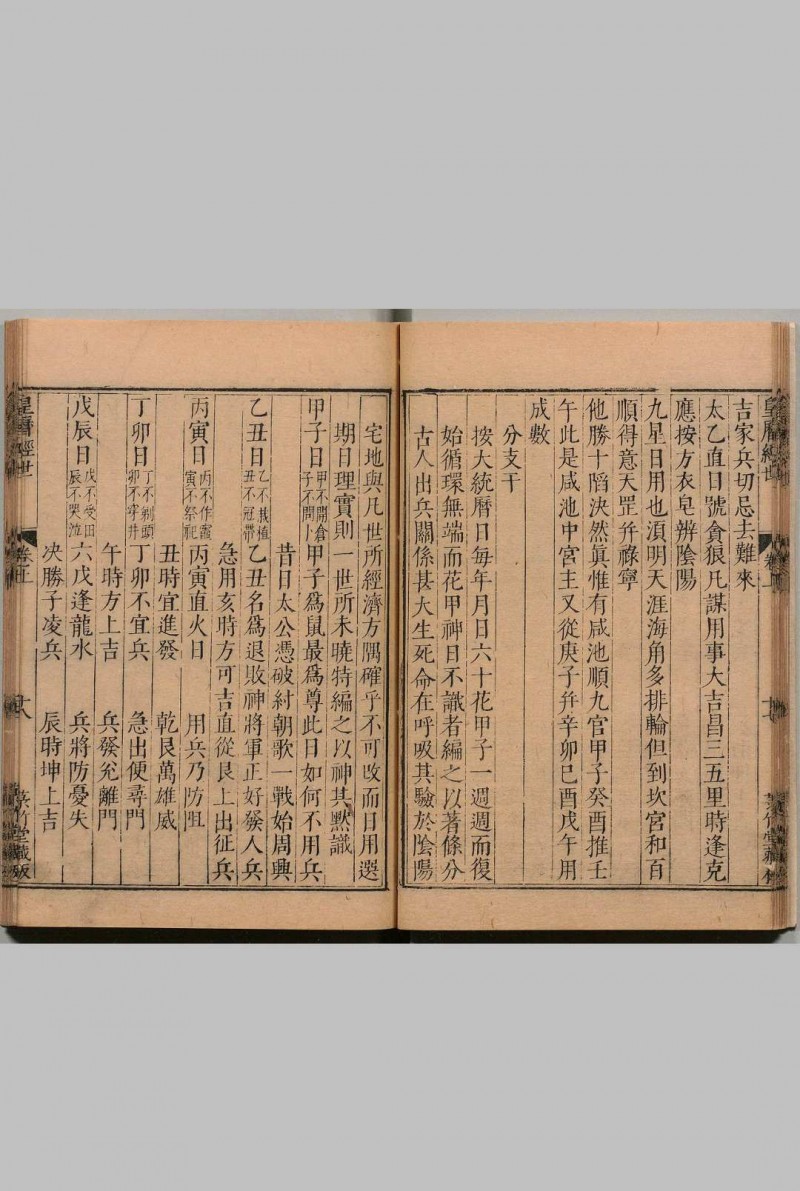 吉家兵切忌去難來
太乙直日號貪狼凡謀用事大吉昌三五里時逢克
應按方衣皂辨陰陽
九星日用也須明天涯海角多排輪但到坎宮和百
順得意天罡并祿寧
他勝十蹈決然眞惟有咸池順九官甲子癸酉推壬
午此是咸池中宮主又從庚子并辛卯巳酉戊午用
成數
分支干
按大統曆日每年月日六十花甲子一週週而復
始循環無端而花甲神日不識者編之以著條分
古人出兵關係甚大生死命在呼吸其驗於陰陽
宅地與凡世所經濟方隅確乎不可改而日用選
期日理實則一世所未曉特編之以神其黙識
甲子日 甲不開倉 子不問卜 甲子爲鼠最爲尊此日如何不用兵
昔日太公憑破紂朝歌一戰始周興
乙丑日 乙不栽植 丑不冠帶 乙丑名爲退敗神將軍正好發人兵
急用亥時方可吉直從艮上出征兵
丙寅日 丙不作竈 寅不祭祀 丙寅直火日 用兵乃防咀
丑時宜進發 乾艮萬雄威
丁卯日 丁不剃頭 卯不穿井 丁卯不宜兵 急出便尋門
午時方上吉 兵發兊離門
戊辰日 戊不受田 辰不哭泣 六戊逢龍水 兵將防憂失
決勝子凌兵 辰時坤上吉
皇曆經世 卷上 十八 菉竹堂藏版